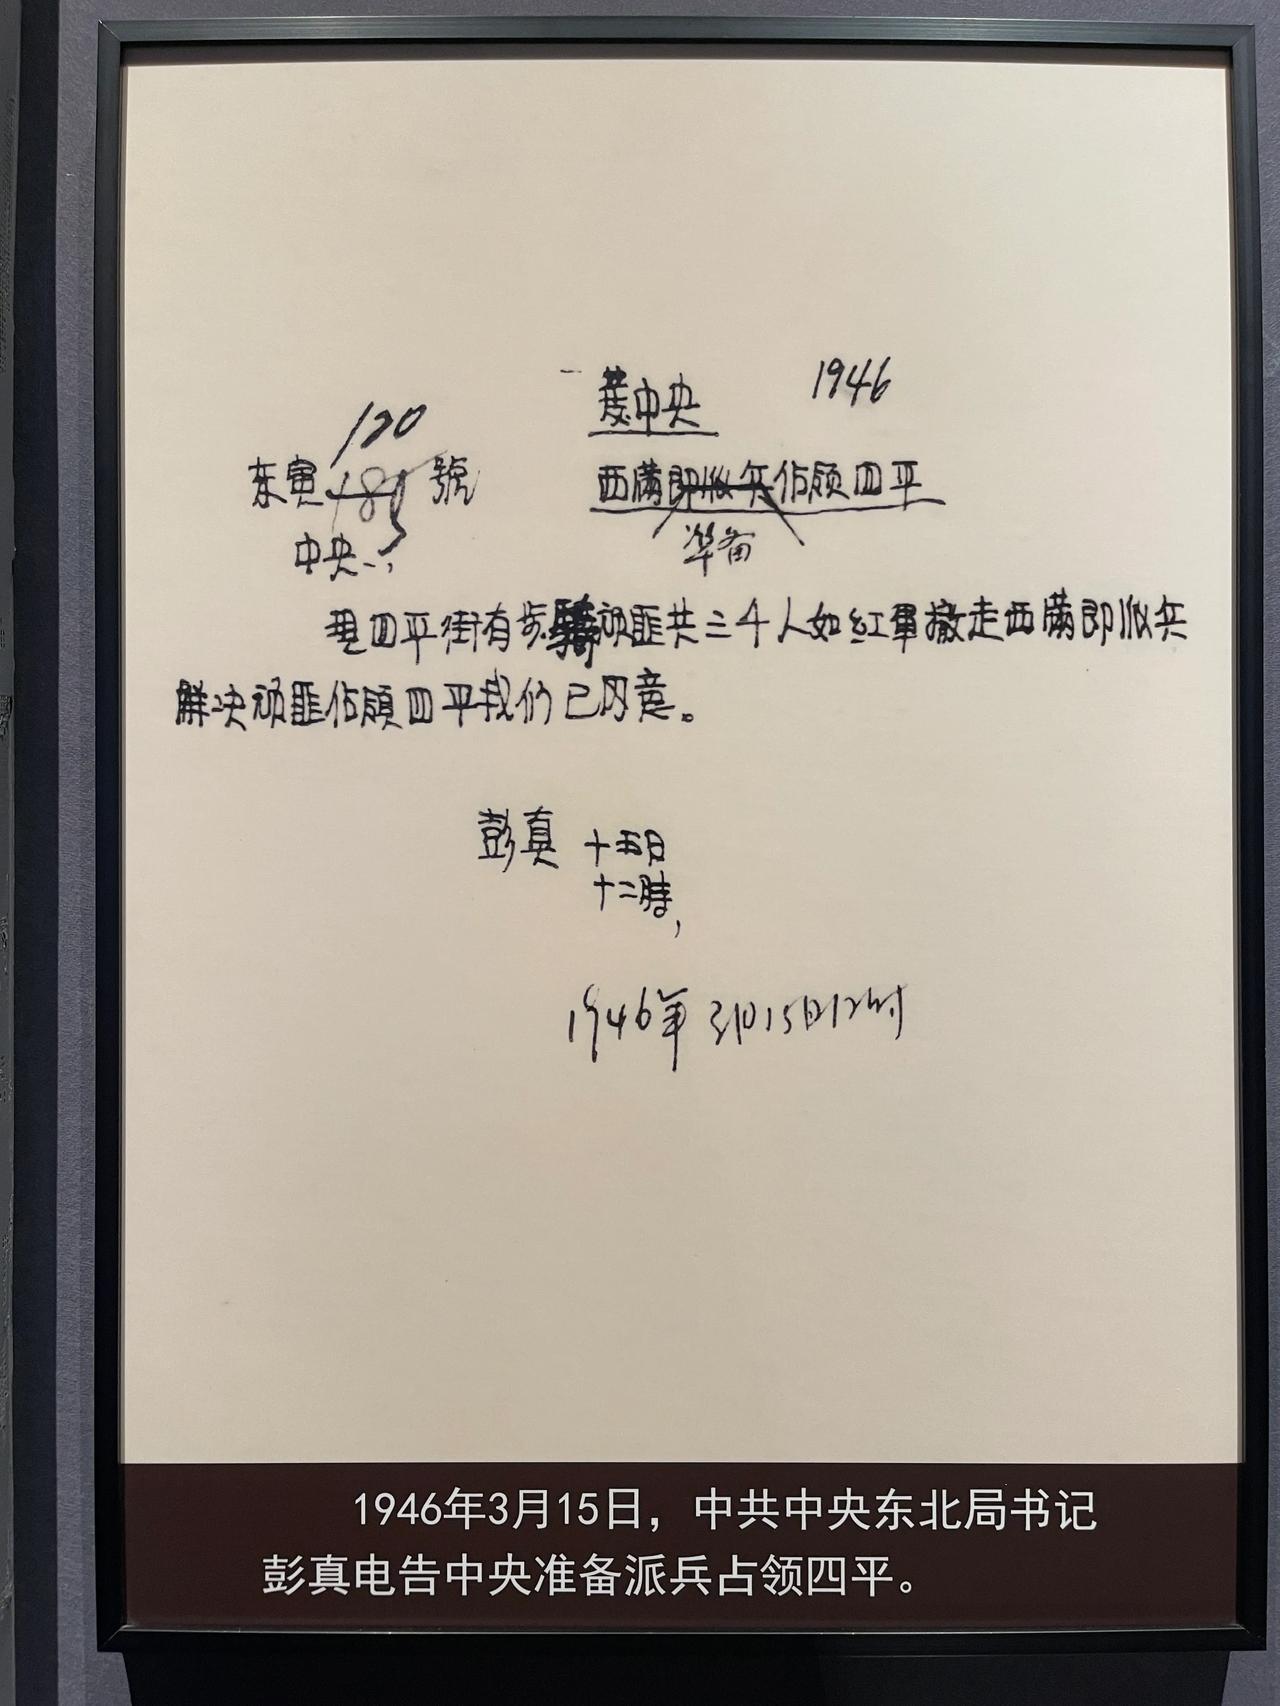 中央
1946
120
东寅185號
西满即派兵佔领四平
準备
中央、
现四平街有步骑顽匪共三千人如红軍撤走西满即派兵
解决顽匪佔领四平我们已同意。
彭真 十五日
十二時,
1946年3月15日12时
1946年3月15日，中共中央东北局书记
彭真电告中央准备派兵占领四平。